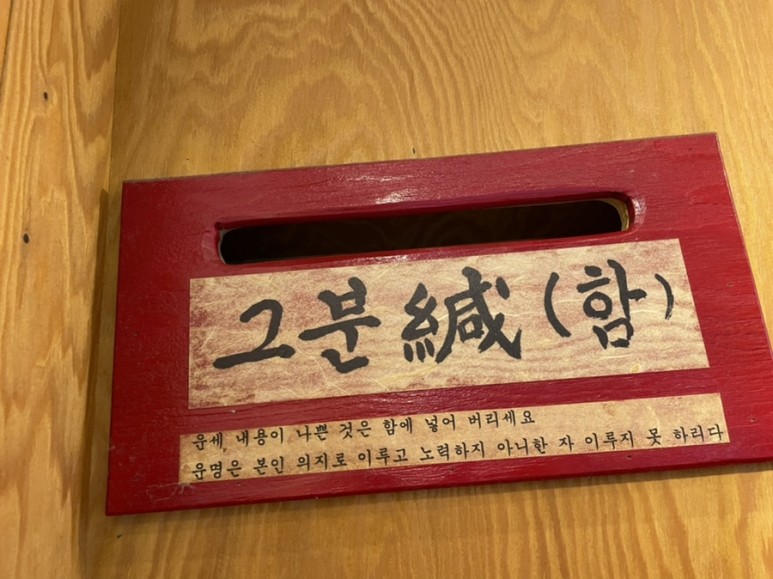 그분 緘 (함)
운세 내용이 나쁜 것은 함에 넣어 버리세요
운명은 본인 의지로 이루고 노력하지 아니한 자 이루지 못 하리다